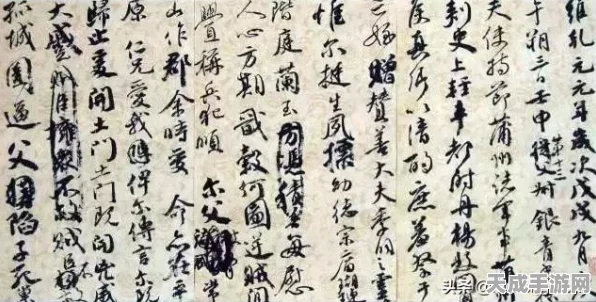 維乾元元年歲次戊戌九月
午朔三日壬申第十三叔銀青
夫使持節蒲州諸軍事蒲
刺史上輕車都尉丹楊縣
侯真卿以清酌庶羞祭于
亡姪贈贊善大夫季明之靈
惟爾挺生夙標幼德宗廟瑚
階庭蘭玉方憑積善每慰
人心方期戩穀何圖逆賊間
釁稱兵犯順爾父竭誠常
山作郡余時受命亦在平
原仁兄愛我俾爾傳言爾既
歸止爰開土門土門既開凶威
大蹙賊臣擁眾不救
孤城圍逼父陷子死巢
天成手游网